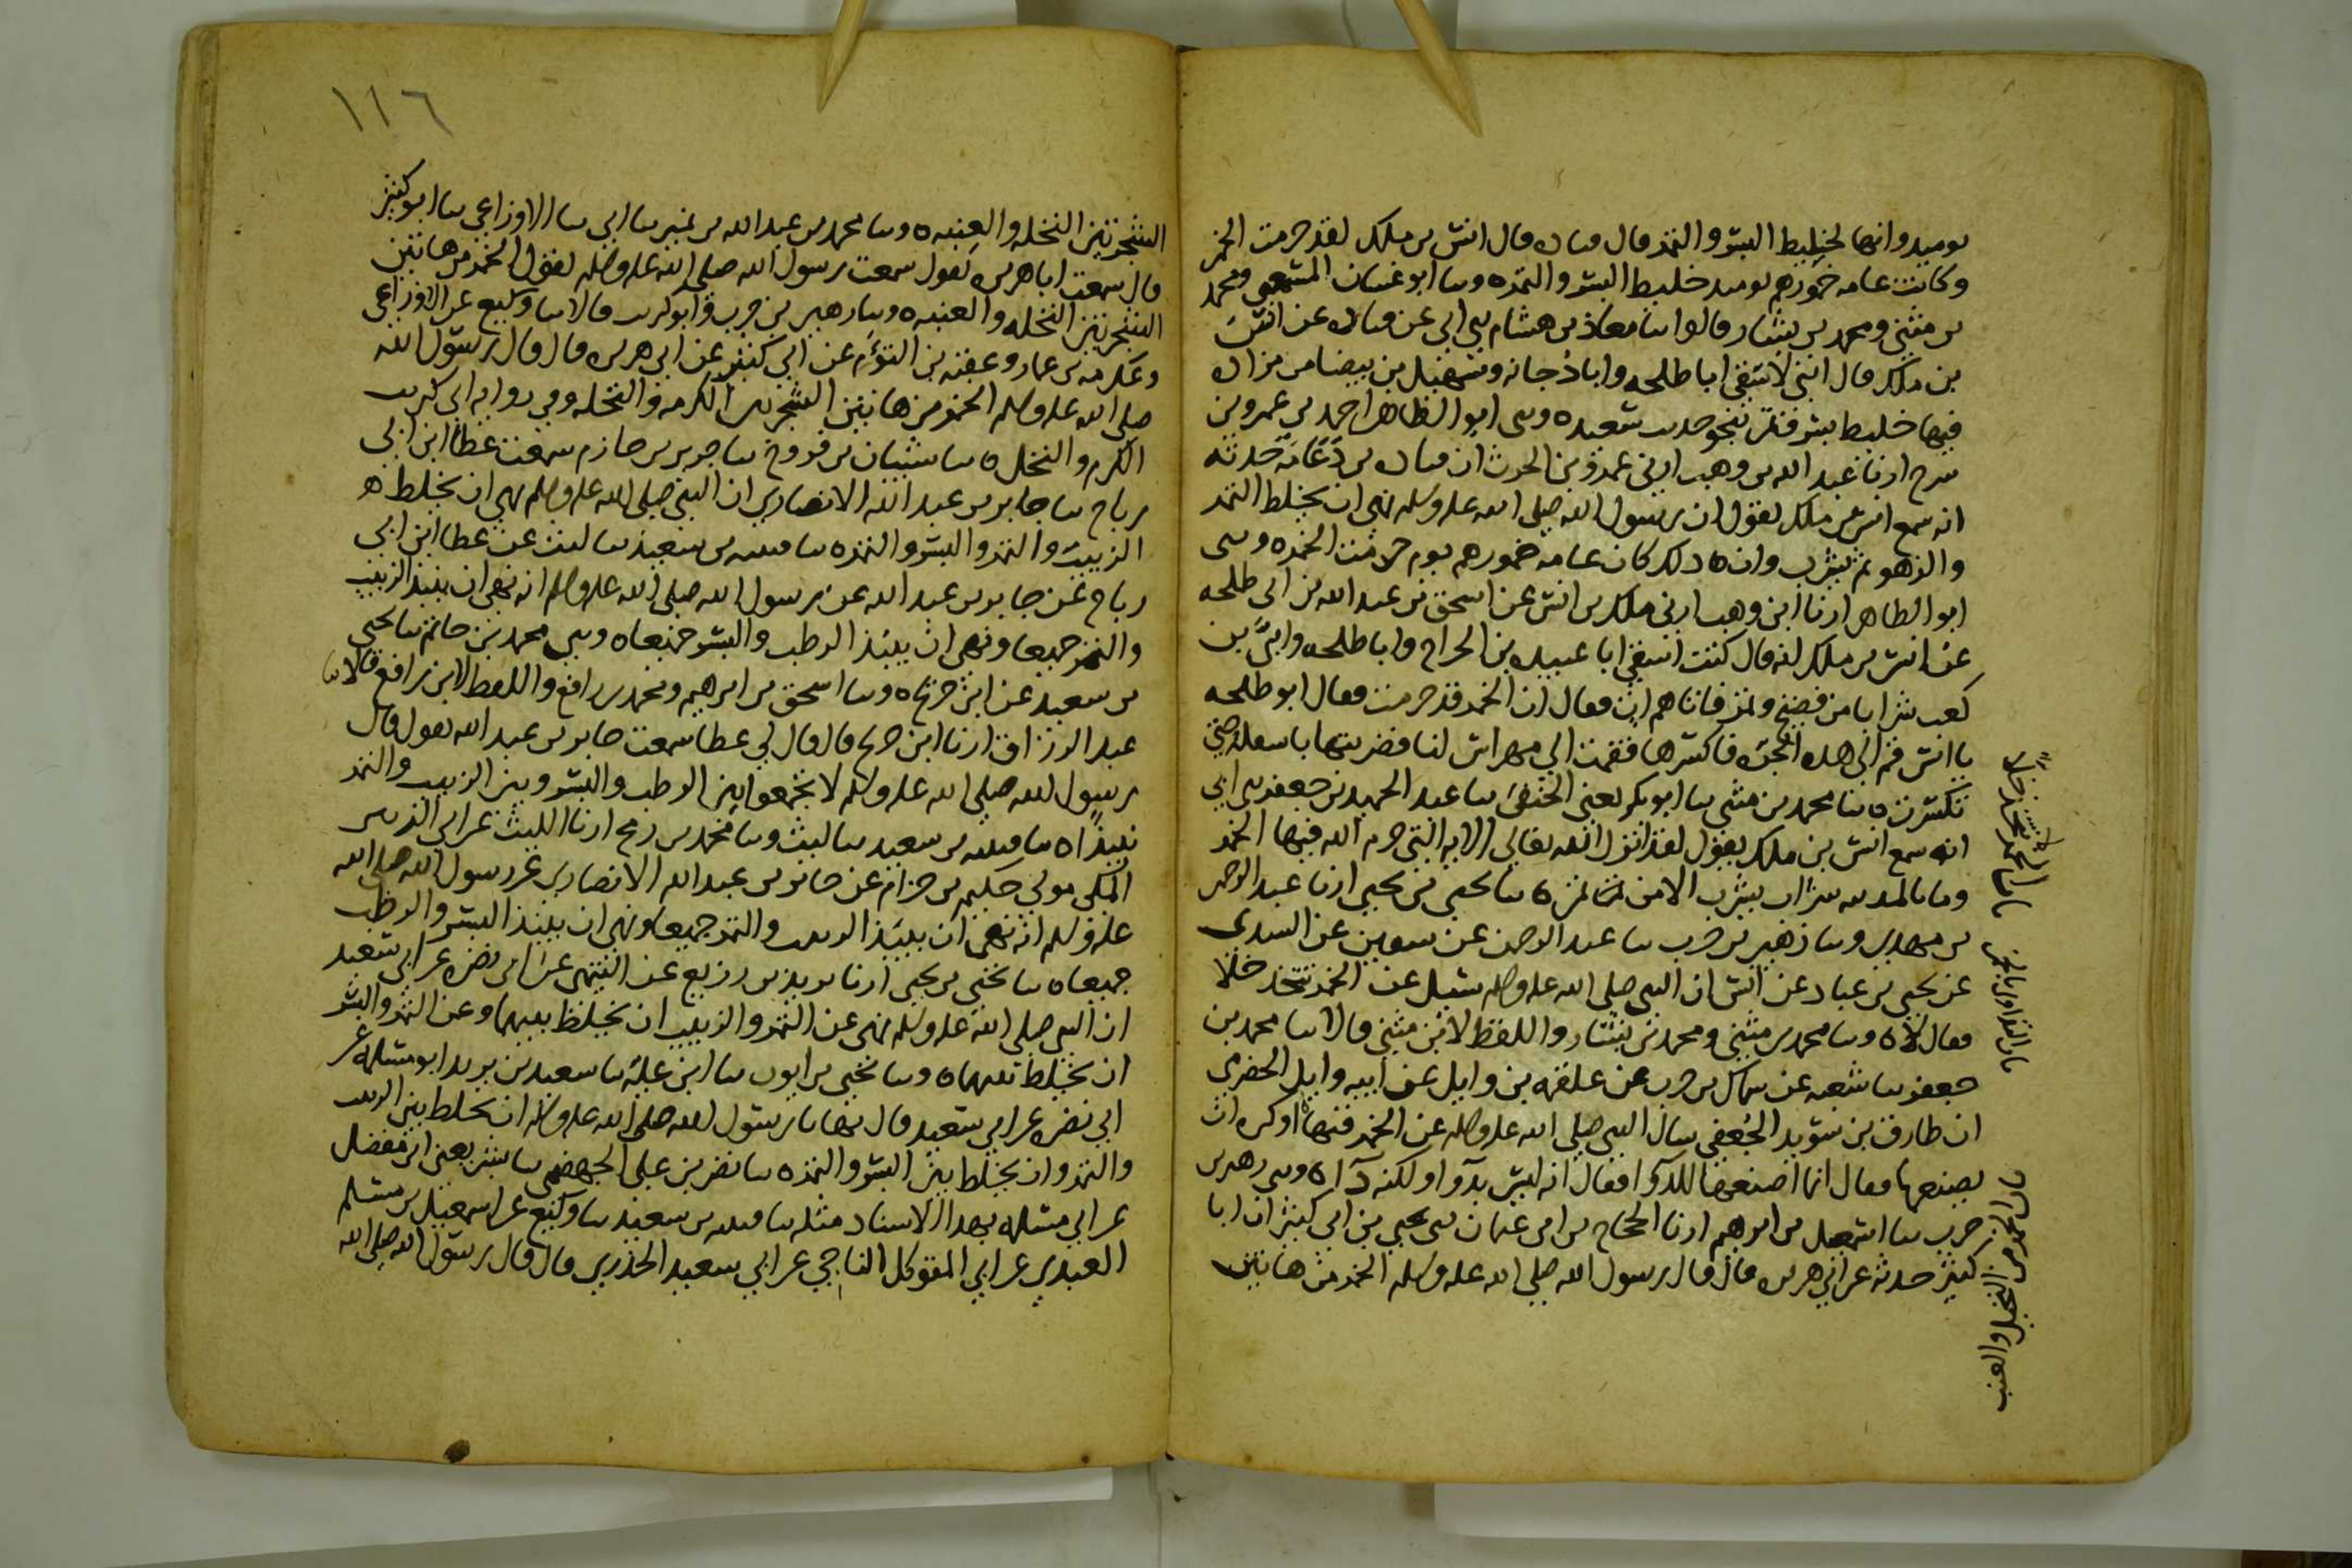 يوميد وانها لخليط البسر والتمر قال قتاده قال انس بن ملك لقد حرمت الخمر
وكانت عامه خمورهم يوميد خليط البسر والتمر ه وسا ابو غسان المسمعي ومحمد
بن مثنى ومحمد بن بشار قالوا سا معاذ بن هشام سى ابي عن قتاده عن انس
بن ملك قال اني لاسقي ابا طلحه وابا دجانه وسهيل بن بيضا من مزاده
فيها خليط بسر وتمر بنحو حديث سعيد ه وسى ابو الطاهر احمد بن عمرو بن
سرح ارنا عبد الله بن وهب ارنى عمرو بن الحرث ان قتاده بن دعامه حدثه
انه سمع انس بن ملك يقول ان رسول الله صلى الله عليه وسلم نهى ان يخلط التمر
والزهو ثم يشرب وان ذلك كان عامه خمورهم يوم حرمت الخمر ه وسى
ابو الطاهر ارنا ابن وهب ارنى ملك بن انس عن اسحق بن عبد الله بن ابي طلحه
عن انس بن ملك انه قال كنت اسقي ابا عبيده بن الجراح وابا طلحه وابي بن
كعب شرابا من فضيخ وتمر فاتاهم ات فقال ان الخمر قد حرمت فقال ابو طلحه
يا انس قم الى هذه الجره فاكسرها فقمت الى مهراس لنا فضربتها باسفله حتى
تكسرت ه سا محمد بن مثنى سا ابو بكر يعني الحنفي سا عبد الحميد بن جعفر سى ابي
انه سمع انس بن ملك يقول لقد انزل الله تعالى الايه التي حرم الله فيها الخمر
وما بالمدينه شراب يشرب الا من تمر ه سا يحيى بن يحيى ارنا عبد الرحمن
بن مهدي وسا زهير بن حرب سا عبد الرحمن عن سفين عن السدي
عن يحيى بن عباد عن انس ان النبي صلى الله عليه وسلم سئل عن الخمر تتخذ خلا
فقال لا ه وسا محمد بن مثنى ومحمد بن بشار واللفظ لابن مثنى قالا سا محمد بن
جعفر سا شعبه عن سماك بن حرب عن علقمه بن وايل عن ابيه وايل الحضرمي
ان طارق بن سويد الجعفي سال النبي صلى الله عليه وسلم عن الخمر فنهاه او كره ان
يصنعها فقال انما اصنعها للدوا فقال انه ليس بدوا ولكنه دا ه وسى زهير بن
حرب سا اسمعيل بن ابرهيم ارنا الحجاج بن ابي عثمان سى يحيى بن ابي كثير ان ابا
كثير حدثه عن ابي هريره قال قال رسول الله صلى الله عليه وسلم الخمر من هاتين
باب الخمر من النخيل والعنب
١١٦
الشجرتين النخله والعنبه ه وسا محمد بن عبد الله بن نمير سا ابي سا الاوزاعي سا ابو كثير
قال سمعت ابا هريره يقول سمعت رسول الله صلى الله عليه وسلم يقول الخمر من هاتين
الشجرتين النخله والعنبه ه وسا زهير بن حرب وابو كريب قالا سا وكيع عن الاوزاعي
وعكرمه بن عمار وعقبه بن التوءم عن ابي كثير عن ابي هريره قال قال رسول الله
صلى الله عليه وسلم الخمر من هاتين الشجرتين الكرمه والنخله وفي روايه ابي كريب
الكرم والنخل ه سا شيبان بن فروخ سا جرير بن حازم سمعت عطا ابن ابي
رباح سا جابر بن عبد الله الانصاري ان النبي صلى الله عليه وسلم نهى ان يخلط
الزبيب والتمر والبسر والتمر ه سا قتيبه بن سعيد سا ليث عن عطا ابن ابي
رباح عن جابر بن عبد الله عن رسول الله صلى الله عليه وسلم انه نهى ان ينبذ الزبيب
والتمر جميعا ونهى ان ينبذ الرطب والبسر جميعا ه وسى محمد بن حاتم سا يحيى
بن سعيد عن ابن جريج ه وسا اسحق بن ابرهيم ومحمد بن رافع واللفظ لابن رافع قالا سا
عبد الرزاق ارنا ابن جريج قال قال لي عطا سمعت جابر بن عبد الله يقول قال
رسول الله صلى الله عليه وسلم لا تجمعوا بين الرطب والبسر وبين الزبيب والتمر
نبيذا ه سا قتيبه بن سعيد سا ليث وسا محمد بن رمح ارنا الليث عن ابي الزبير
المكي مولى حكيم بن حزام عن جابر بن عبد الله الانصاري عن رسول الله صلى الله
عليه وسلم انه نهى ان ينبذ الزبيب والتمر جميعا ونهى ان ينبذ البسر والرطب
جميعا ه سا يحيى بن يحيى ارنا يزيد بن زريع عن التيمي عن ابي نضره عن ابي سعيد
ان النبي صلى الله عليه وسلم نهى عن التمر والزبيب ان يخلط بينهما وعن التمر والبسر
ان يخلط بينهما ه وسا يحيى بن ايوب سا ابن عليه سا سعيد بن يزيد ابو مسلمه عن
ابي نضره عن ابي سعيد قال نهانا رسول الله صلى الله عليه وسلم ان نخلط بين الزبيب
والتمر وان نخلط بين البسر والتمر ه سا نصر بن علي الجهضمي سا بشر يعني ابن مفضل
عن ابي مسلمه بهذا الاسناد مثله سا قتيبه بن سعيد سا وكيع عن اسمعيل بن مسلم
العبدي عن ابي المتوكل الناجي عن ابي سعيد الخدري قال قال رسول الله صلى الله